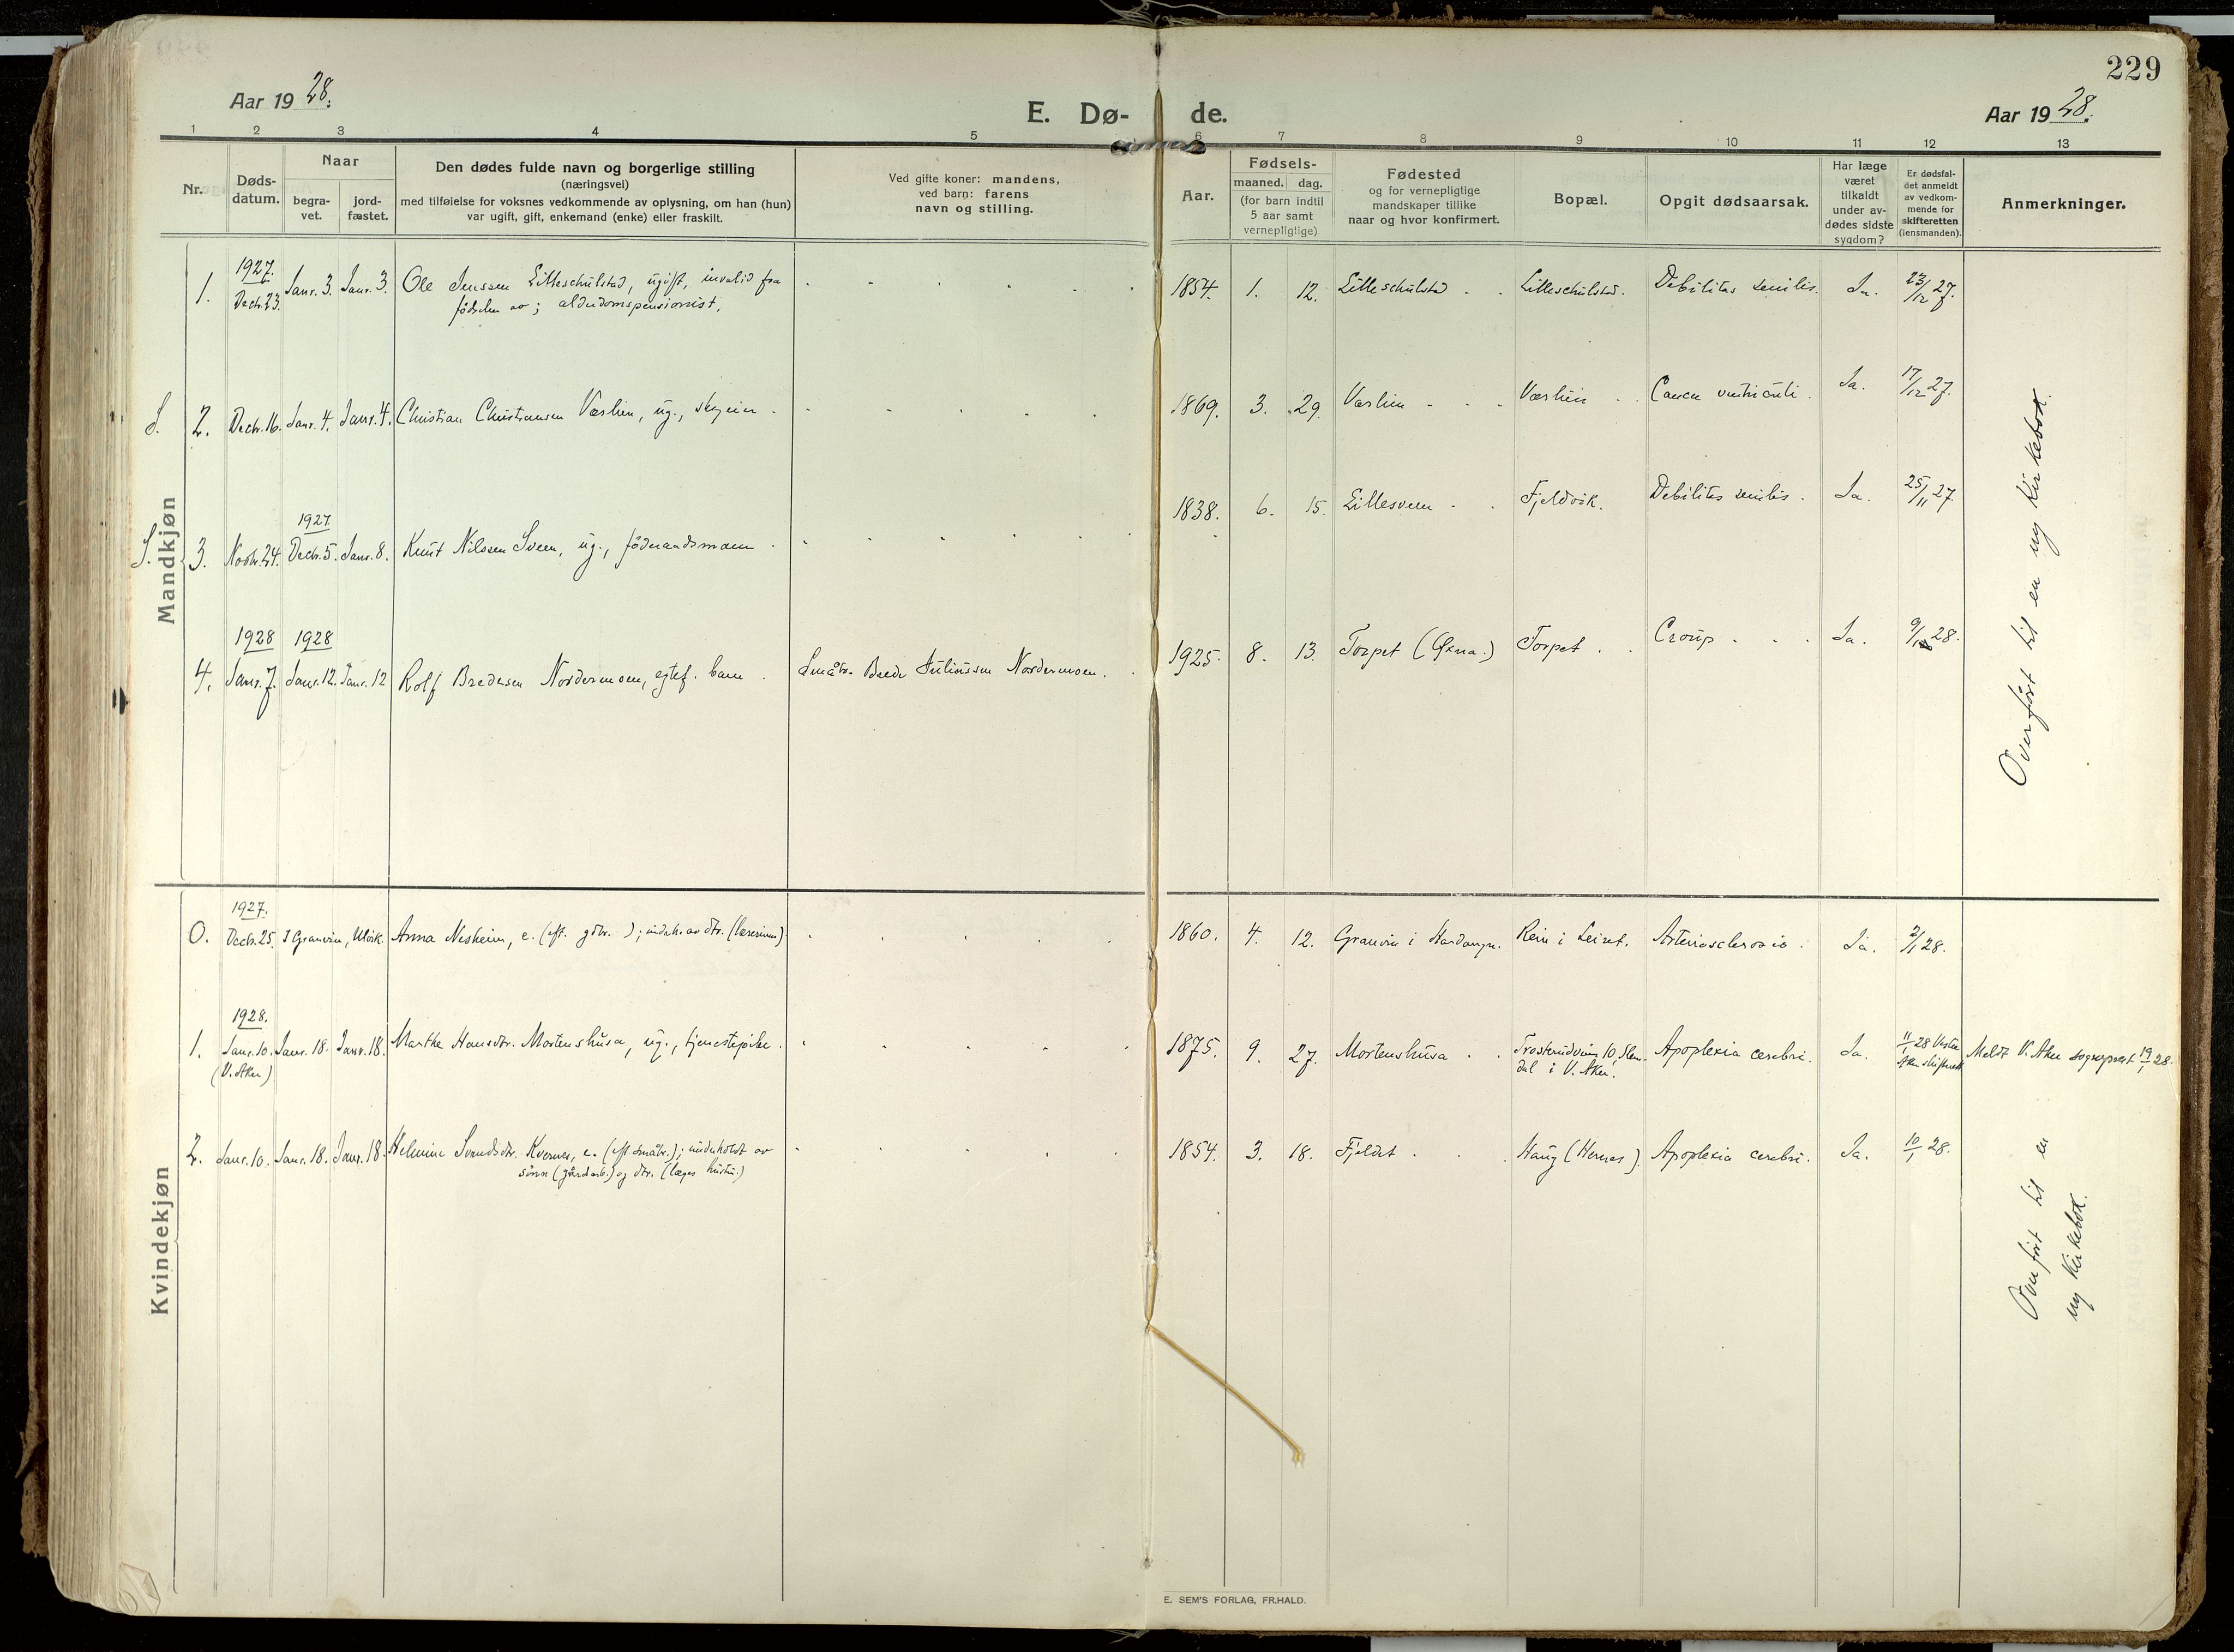 229
Aar 1928.
E. Dø-
de.
Aar 1928.
1 2 3 4 5 6 7 8 9 10 11 12 13
Nr.
Døds-
datum.
Naar
begra-
vet.
jord-
fæstet.
Den dødes fulde navn og borgerlige stilling
(næringsvei)
med tilføielse for voksnes vedkommende av oplysning, om han (hun)
var ugift, gift, enkemand (enke) eller fraskilt.
Ved gifte koner: mandens,
ved barn: farens
navn og stilling.
Aar.
Fødsels-
maaned. dag.
(for barn indtil
5 aar samt
vernepligtige)
Fødested
og for vernepligtige
mandskaper tillike
naar og hvor konfirmert.
Bopæl.
Opgit dødsaarsak.
Har læge
været
tilkaldt
under av-
dødes sidste
sygdom?
Er dødsfal-
det anmeldt
av vedkom-
mende for
skifteretten
(lensmanden).
Anmerkninger.
Mandkjøn
1927.
1. Decbr. 23. Janr. 3. Janr. 3. Ole Jenssen Lilleschulstad, ugift, invalid fra 1854. 1. 12. Lilleschulstad Lilleschulstad. Debilitas senilis. Ja. 23/12 27.
fødselen av; alderdomspensionist.
S. 2. Decbr. 16. Janr. 4. Janr. 4. Christian Christiansen Værlien, ug., skogeier 1869. 3. 29. Værlien Værlien Cancer ventriculi. Ja. 17/12 27.
1927.
S. 3. Novbr. 24. Decbr. 5. Janr. 8. Knut Nilssen Sveen, ug., föderaadsmann 1838. 6. 15. Lillesveen Fjeldvik. Debilitas senilis. Ja. 25/11 27
1928 1928
4. Janr. 7. Janr. 12. Janr. 12 Rolf Bredesen Nordermoen, egtef. barn. Småbr. Brede Juliussen Nordermoen. 1925. 8. 13. Torpet (Øxna.) Torpet. Croup Ja. 9/1 28.
Overført til en ny kirkebok.
Kvindekjøn
1927.
0. Decbr. 25. I Granvin, Ulvik. Anna Nesheim, e. (eft. gdbr.); underh. av dtr. (lærerinne) 1860. 4. 12. Granvin i Hardanger. Rein i Leiret. Arteriosclerosis. Ja. 2/1 28.
1928.
1. Janr. 10. Janr. 18. Janr. 18. Marthe Hansdtr. Mortenshusa, ug., tjenestepike 1875. 9. 27. Mortenshusa Trosterudveien 10, Slem- Apoplexia cerebri. Ja. 11/1 28 Vestre Meldt V. Aker sogneprest 19/1 28.
(V. Aker) dal i V. Aker. Aker skifterett
2. Janr. 10. Janr. 18. Janr. 18. Helmine Svendsdtr. Kvernes, e. (eft småbr.); underholdt av 1854. 3. 18. Fjeldet Haug (Hernes). Apoplexia cerebri. Ja. 10/1 28.
sönn (gårdarb.) og dtr. (læges hustru.)
Overført til en
ny kirkebok.
E. SEM'S FORLAG, FR.HALD.